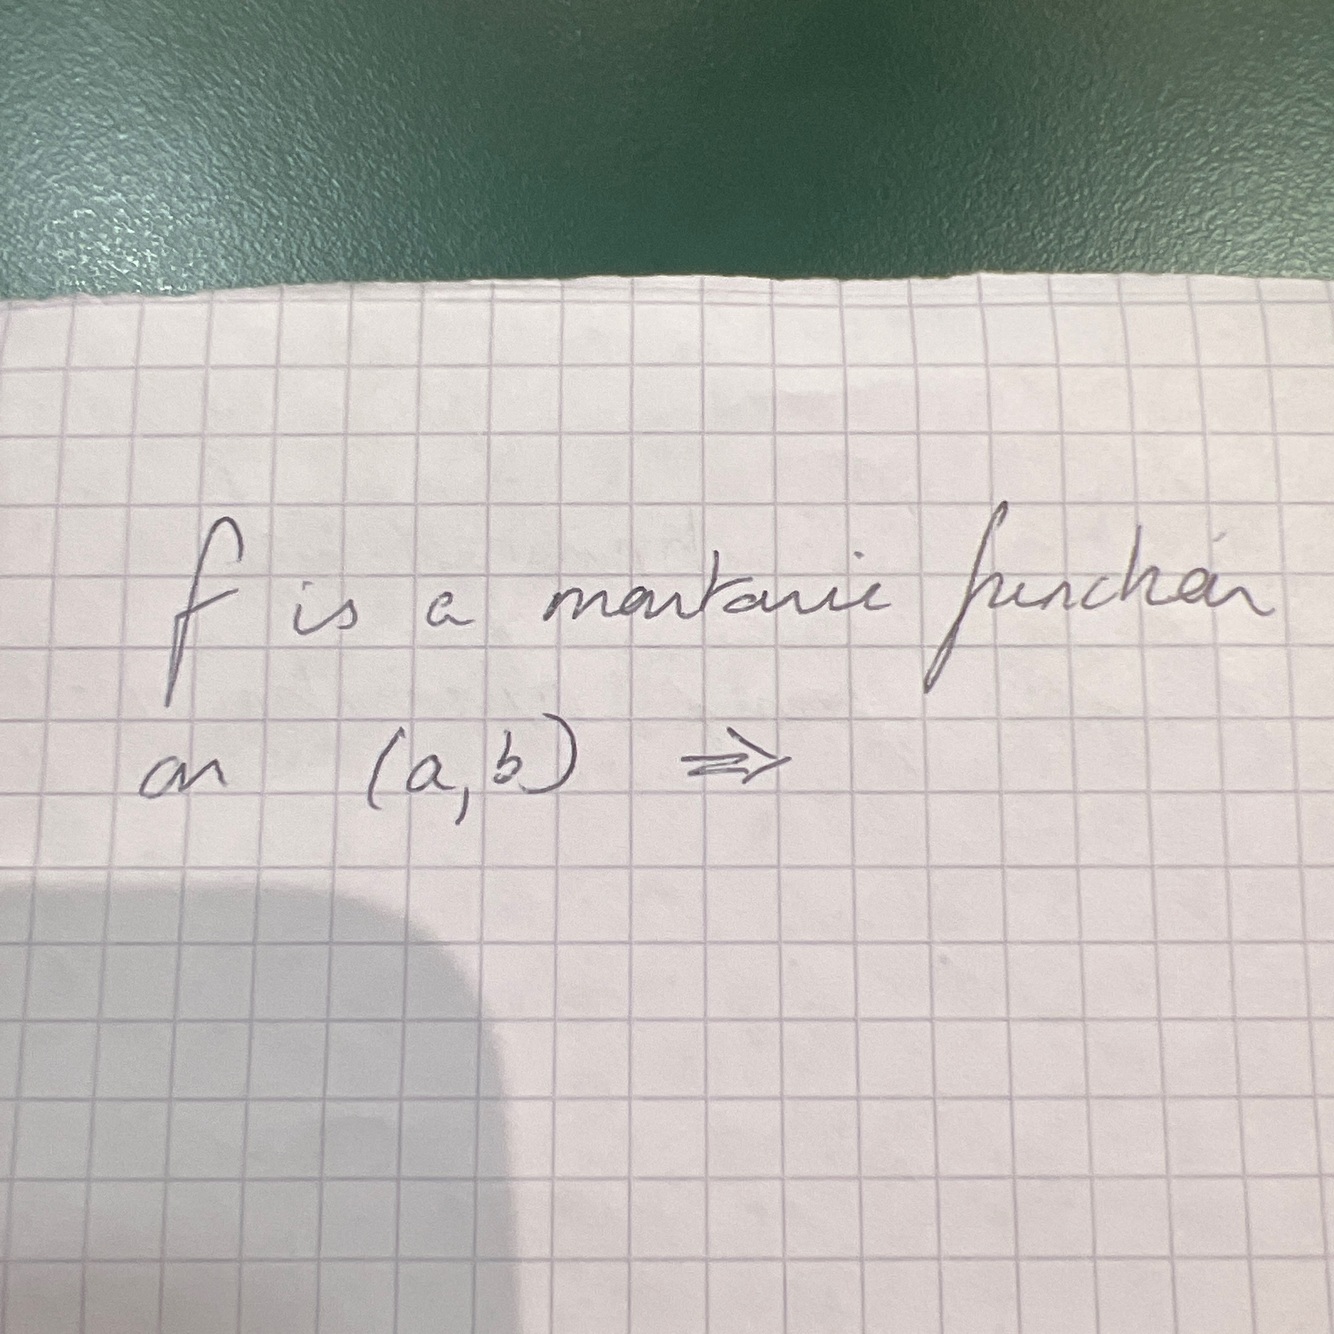 f is a montonic function
on (a,b) ⇒